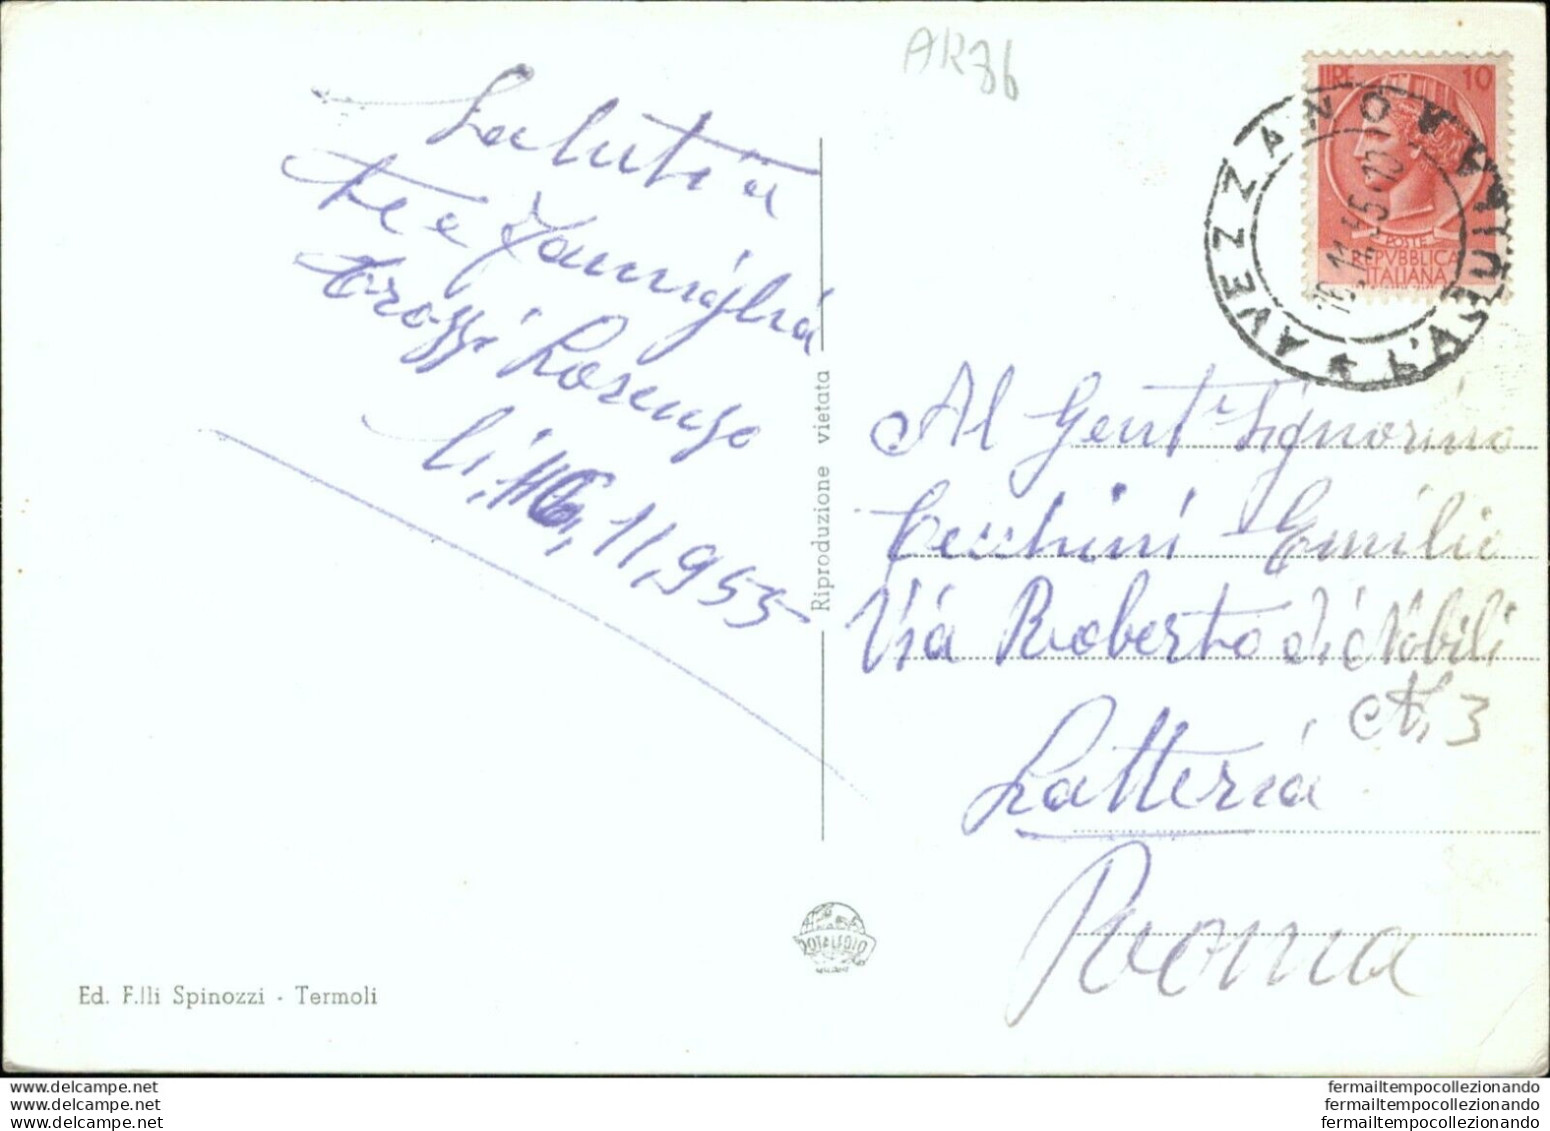 AR86
Saluti a
te e famiglia
Grossi Lorenzo
li, 16, 11, 955
Riproduzione vietata
LIRE 10
POSTE
REPVBBLICA
ITALIANA
* AVEZZANO * L'AQUILA
Al Gent. Signorino
Cecchini Emilio
Via Roberto di Nobili
N, 3
Latteria
Roma
TOTALFOTO
Ed. F.lli Spinozzi - Termoli
www.delcampe.net
www.delcampe.net
www.delcampe.net
fermailtempocollezionando
fermailtempocollezionando
fermailtempocollezionando